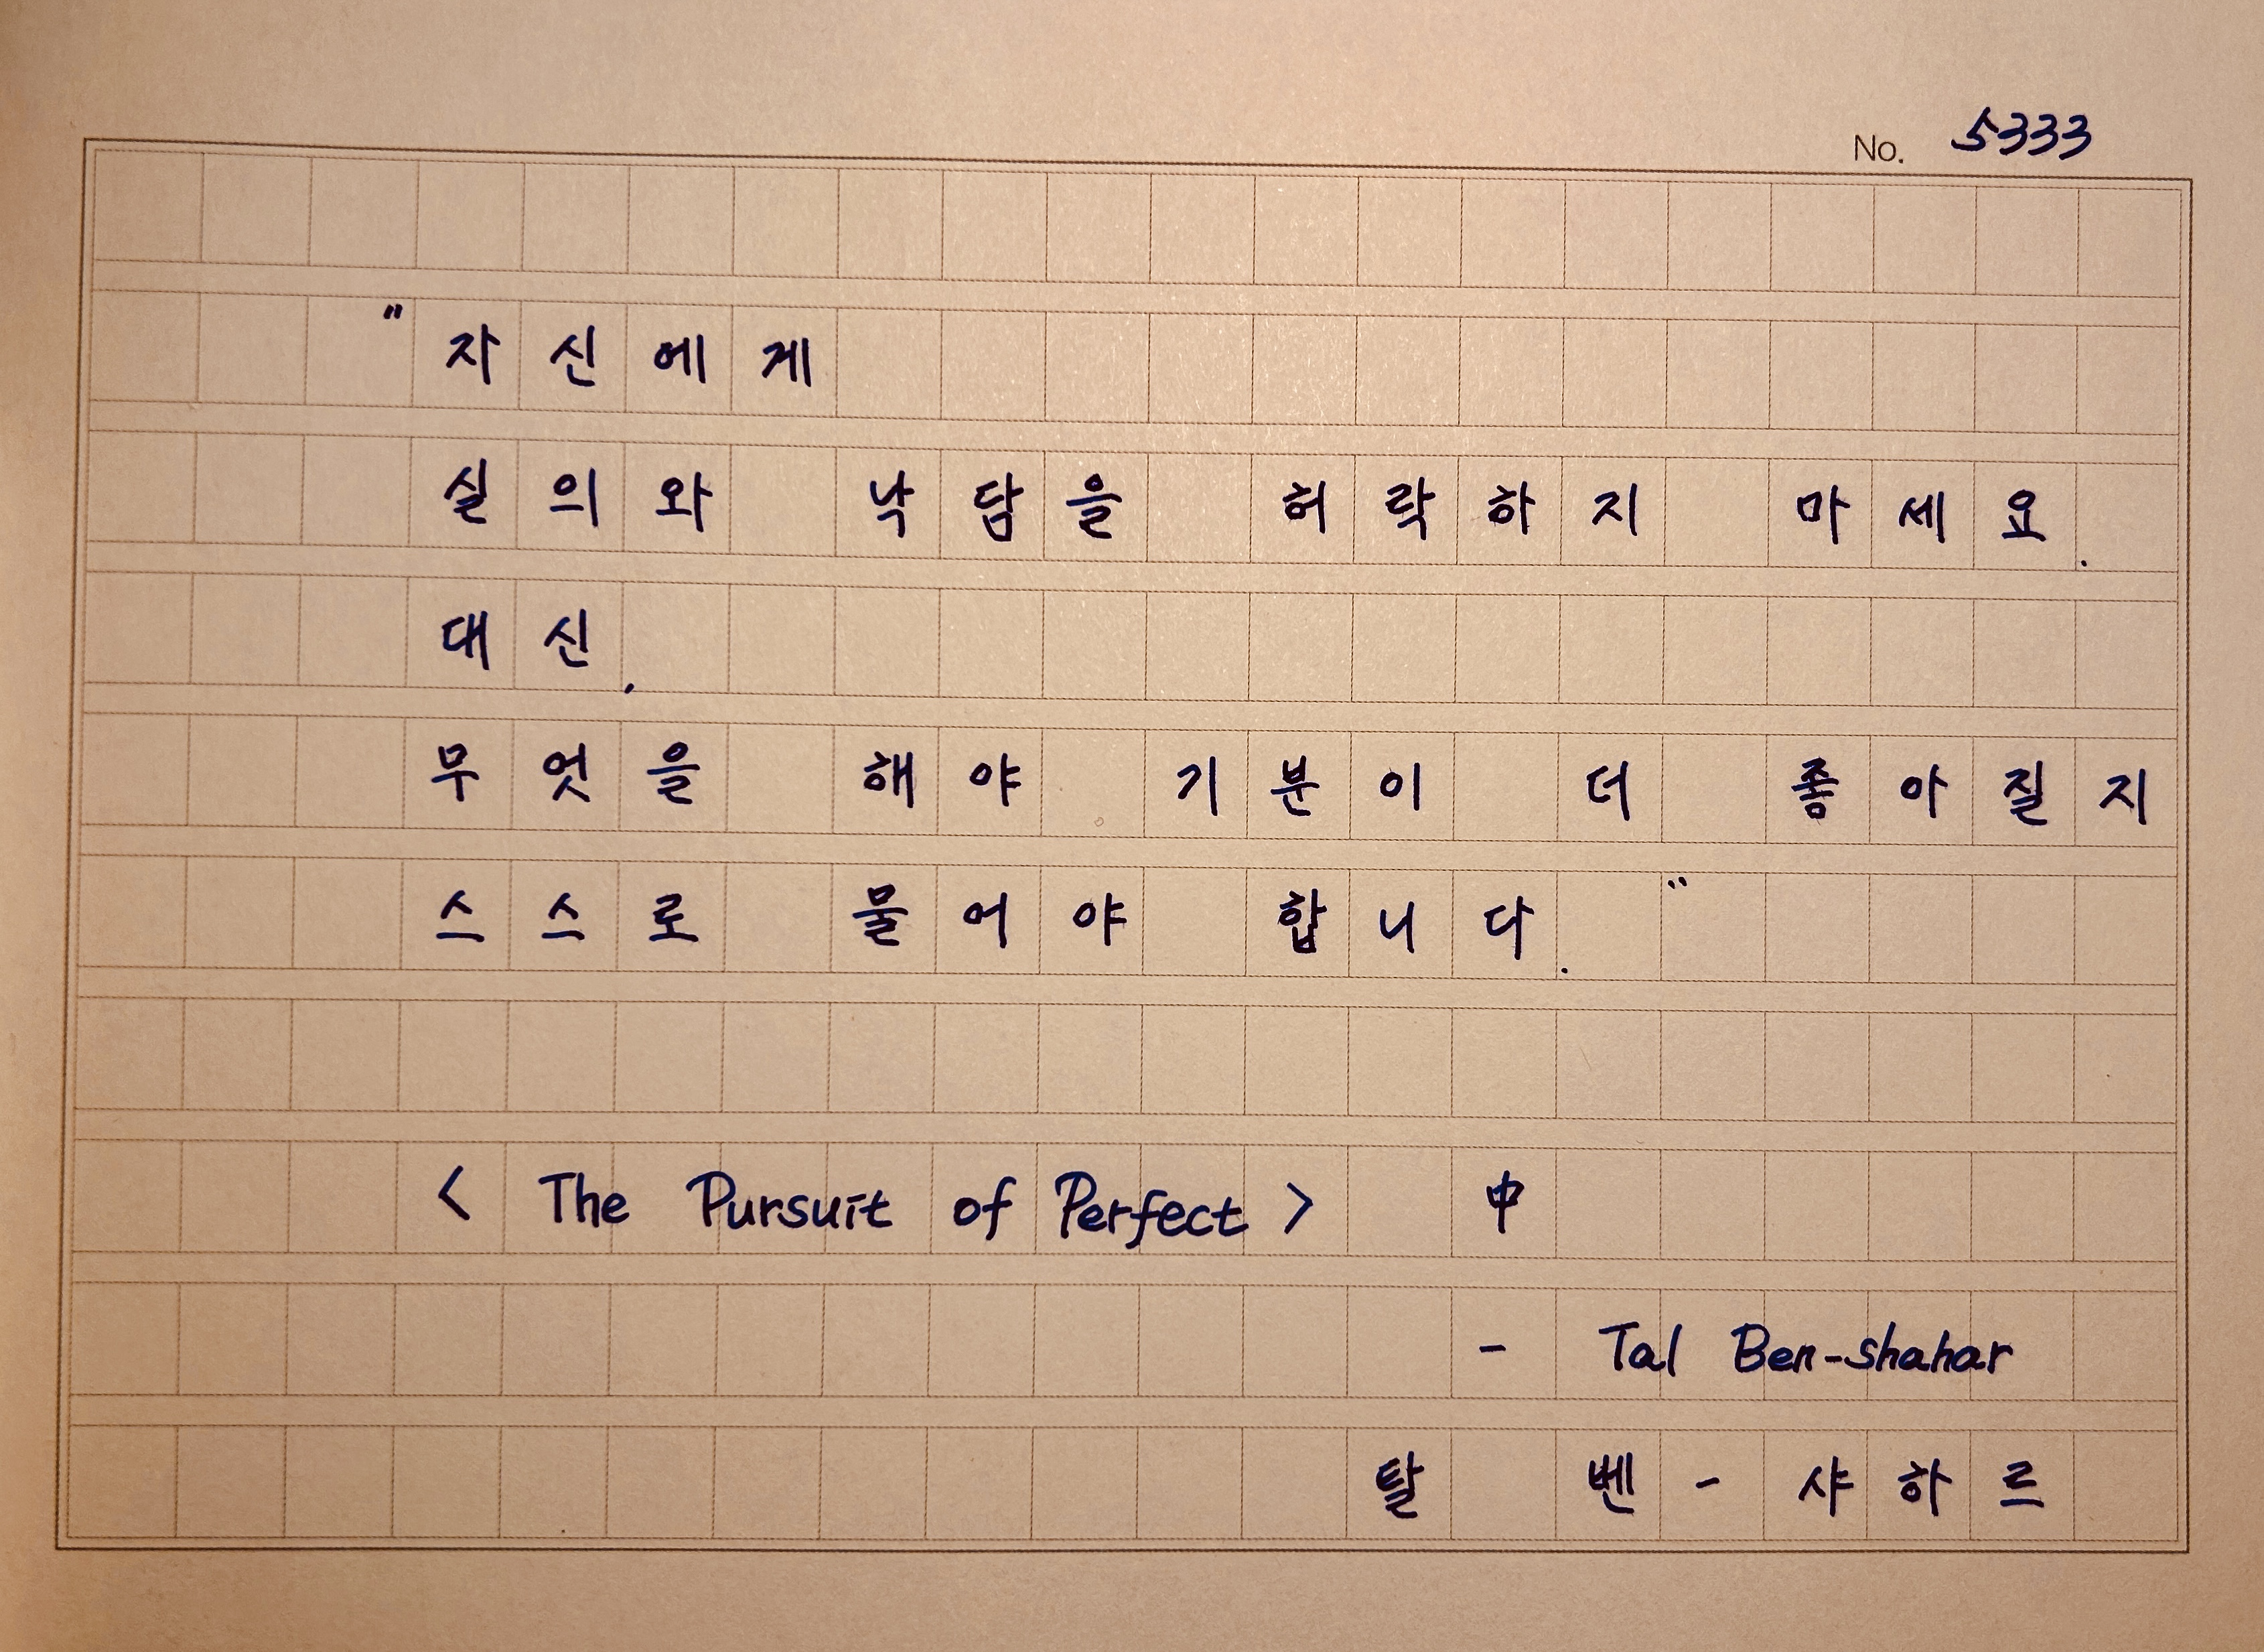 No. 5333
"자신에게
실의와 낙담을 허락하지 마세요.
대신,
무엇을 해야 기분이 더 좋아질지
스스로 물어야 합니다."
< The Pursuit of Perfect > 中
- Tal Ben-shahar
탈 벤-샤하르